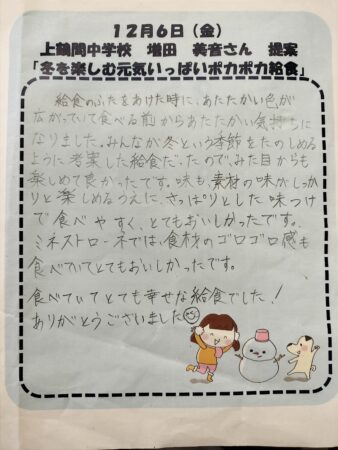 12月6日（金）
上鶴間中学校　増田　美音さん　提案
「冬を楽しむ元気いっぱいポカポカ給食」
給食のふたをあけた時に、あたたかい色が
広がっていて食べる前からあたたかい気持ちに
なりました。みんなが冬という季節をたのしめる
ように考案した給食だったので、みた目からも
楽しめて良かったです。味も、素材の味がしっか
りと楽しめるうえに、さっぱりとした味つけ
で食べやすく、とてもおいしかったです。
ミネストローネでは、食材のゴロゴロ感も
食べていてとてもおいしかったです。
食べていてとても幸せな給食でした！
ありがとうございました